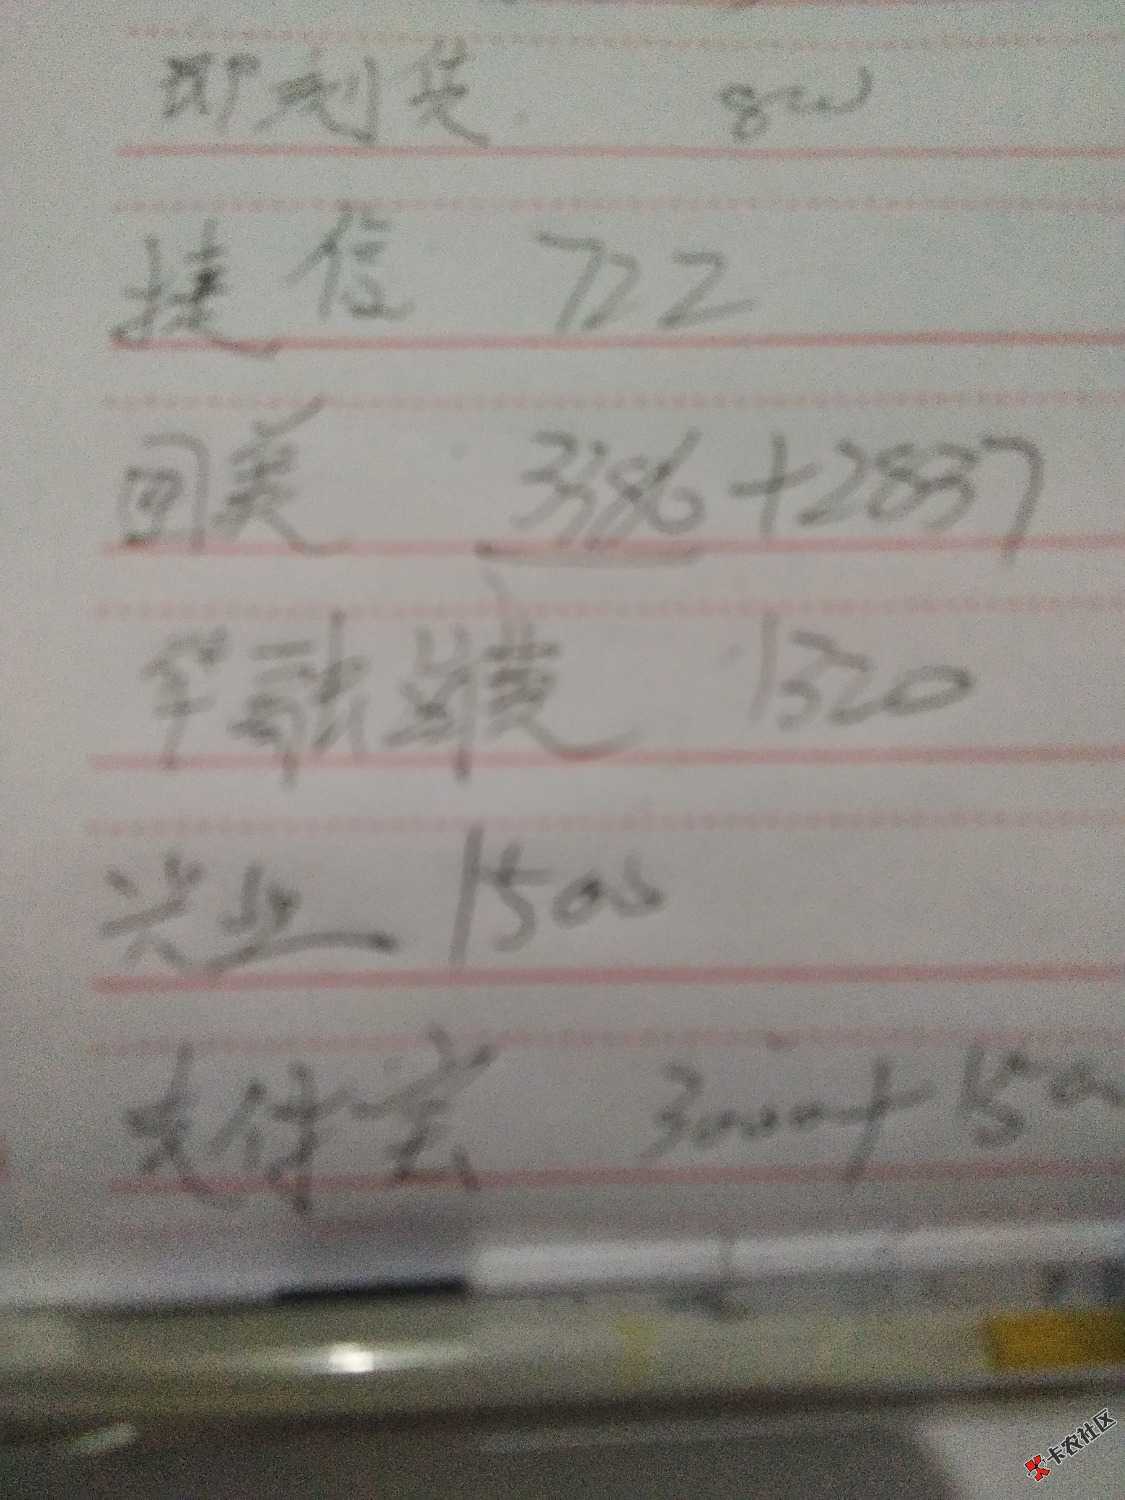 即刻贷 800
捷信 722
国美 3386+2837
华融 1320
兴业 1500
支付宝 3000+1500
卡农社区